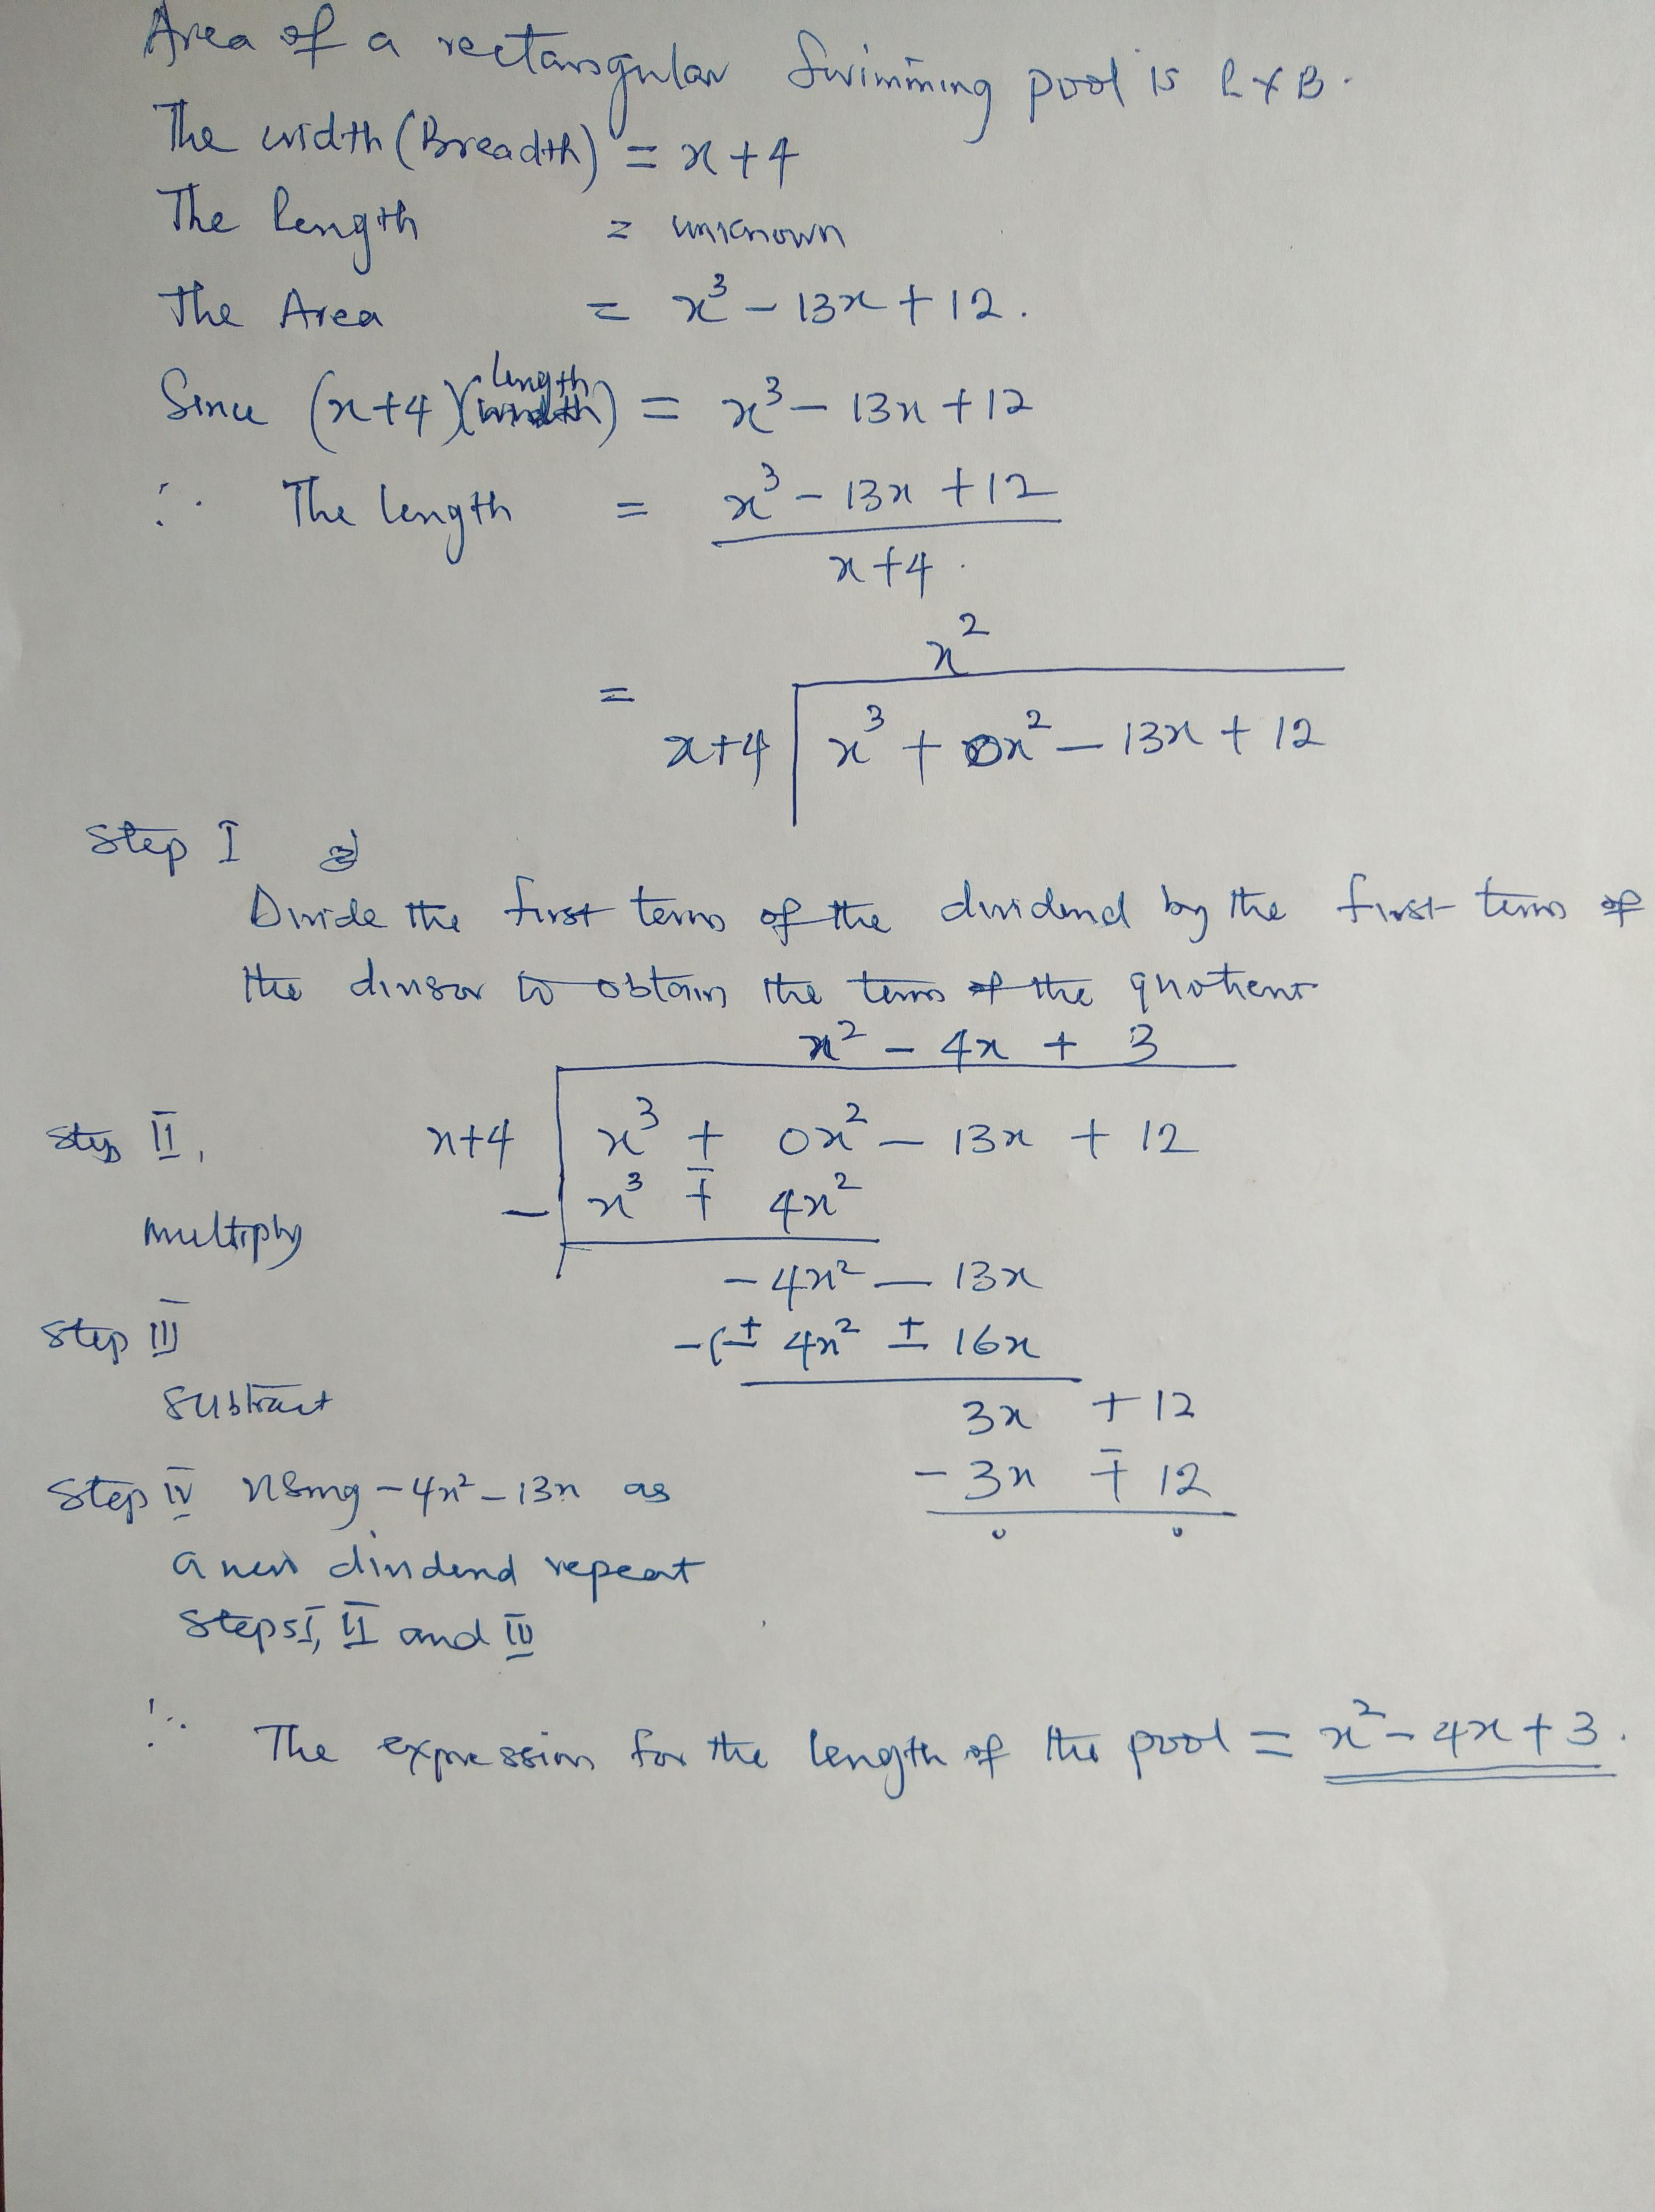 Area of a rectangular Swimming pool is L×B.
The width (Breadth) = x+4
The length = unknown
The Area = x³ - 13x + 12.
length
Since (x+4)(width) = x³ - 13x + 12
∴ The length = x³ - 13x + 12
x+4.
x²
= x+4 x³ + 0x² - 13x + 12
Step I
Divide the first term of the dividend by the first term of
the divisor to obtain the term of the quotient
x² - 4x + 3
Step II, x+4 x³ + 0x² - 13x + 12
- x³ ∓ 4x²
Multiply
-4x² - 13x
Step III -(± 4x² ± 16x
Subtract 3x + 12
Step IV Using -4x² - 13x as - 3x ∓ 12
0 0
a new dividend repeat
Steps I, II and III
∴ The expression for the length of the pool = x² - 4x + 3.